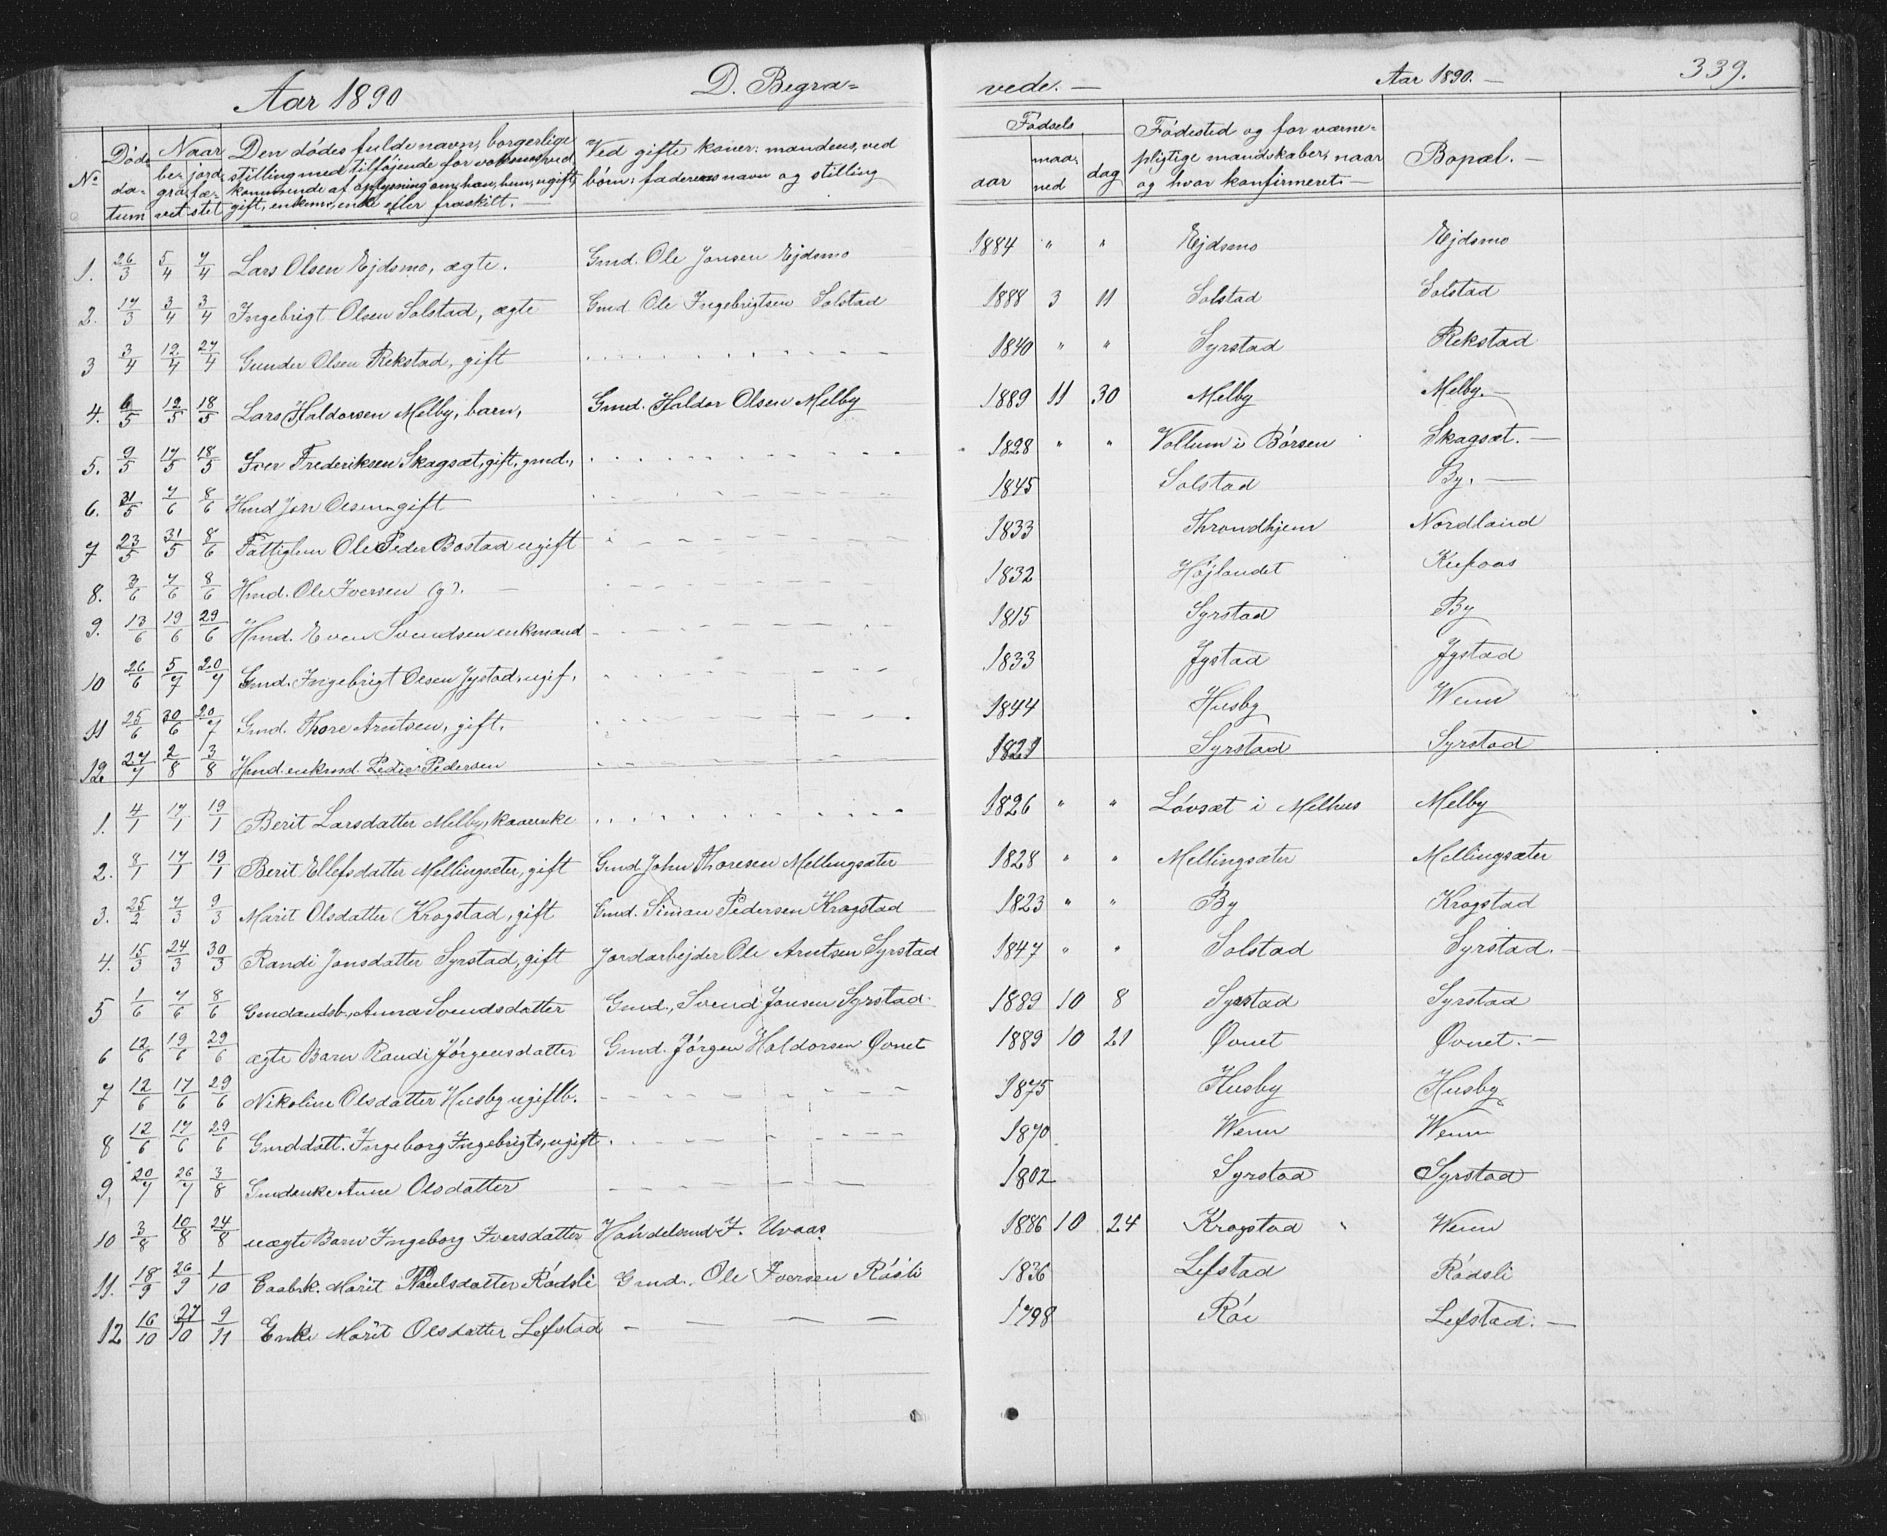 Aar 1890 D. Begra= vede. — Aar 1890. — 339.
No | Døds datum | Naar begravet | jordfæstet | Den dødes fulde navn, borgerlige stilling med tilføiende for voksnes vedkommende af oplysning om, han, hun, ugift, gift, enkem., enke eller fraskilt. — | Ved gifte koner: mandens, ved børn: faderens navn og stilling | Fødsels aar | maaned | dag | Fødested og for værnepligtige mandskaber, naar og hvor konfirmeret. — | Bopæl. —
1. 26/3 5/4 7/4 Lars Olsen Ejdsmo, ægte. Gmd. Ole Jonsen Ejdsmo 1884 " " Ejdsmo Ejdsmo
2. 17/3 3/4 3/4 Ingebrigt Olsen Solstad, ægte Gmd Ole Ingebrigtsen Solstad 1888 3 11 Solstad Solstad
3 3/4 12/4 27/4 Gunder Olsen Rekstad, gift 1840 " " Syrstad Rekstad
4. 6/5 12/5 18/5 Lars Haldorsen Melby, barn, Gmd. Haldor Olsen Melby 1889 11 30 Melby Melby. —
5. 9/5 17/5 18/5 Iver Frederiksen Skagsæt, gift, gmd., 1828 " " Vollum i Børsen Skagsæt. —
6. 31/5 7/6 8/6 Hmd Jon Olsen gift 1845 Solstad By. —
7 23/5 31/5 8/6 Fattiglem Ole Peder Bostad ugift 1833 Throndhjem Nordland
8. 3/6 7/6 8/6 Hmd. Ole Iversen (g). — 1832 Højlandet
9. 13/6 19/6 29/6 Hmd. Even Svendsen enkmand 1815 Syrstad By
10 26/6 5/7 20/7 Gmd. Ingebrigt Olsen Jystad, ugif. 1833 Jystad Jystad
11 25/6 30/6 20/7 Gmd. Thore Arntsen, gift. 1844 Husby Wenn
12 27/7 2/8 3/8 Hmd. enkmd. Peder Pedersen 1821 Syrstad Syrstad
1. 4/1 17/1 19/1 Berit Larsdatter Melby, kaarenke 1826 " " Løvsæt i Melhus Melby
2. 8/1 17/1 19/1 Berit Ellefsdatter Mellingsæter, gift Gmd John Thoresen Mellingsæter 1828 " " Mellingsæter Mellingsæter
3. 25/2 7/3 9/3 Marit Olsdatter Krogstad, gift Gmd. Simon Pedersen Krogstad 1823 " " By Krogstad
4. 15/3 24/3 30/3 Randi Jonsdatter Syrstad, gift Jordarbejder Ole Arntsen Syrstad 1847 " " Solstad Syrstad. —
5 1/6 7/6 8/6 Gmdandsb. Anna Svendsdatter Gmd., Svend Jonsen Syrstad 1889 10 8 Syrstad Syrstad
6 12/6 19/6 29/6 ægte Barn Randi Jørgensdatter Gmd. Jørgen Haldorsen Øvnet 1889 10 21 Øvnet Øvnet. —
7 12/6 17/6 29/6 Nikoline Olsdatter Husby ugift. 1875 Husby Husby
8 12/6 17/6 29/6 Gmddatt. Ingeborg Ingebrigts, ugift. 1870 Wenn Wenn
9, 20/7 26/7 3/8 Gmdenke Anne Olsdatter 1802 Syrstad Syrstad
10 3/8 10/8 24/8 uægte Barn Ingeborg Iversdatter Handelsmd I. Uvaas 1886 10 24 Krogstad " Wenn
11. 18/9 26/9 1/10 Marit Paulsdatter Rødsli Gmd. Ole Iversen Røsli 1836 Lefstad Rødsli
12 16/10 27/10 9/11 Enke Marit Olsdatter Lefstad 1798 Røe Lefstad. —